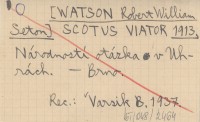 [WATSON Robert William
Seton] SCOTUS VIATOR 1913,
Národnostní otázka v Uh-
rách. - Brno.
Rec.: Varsik B. 1937.